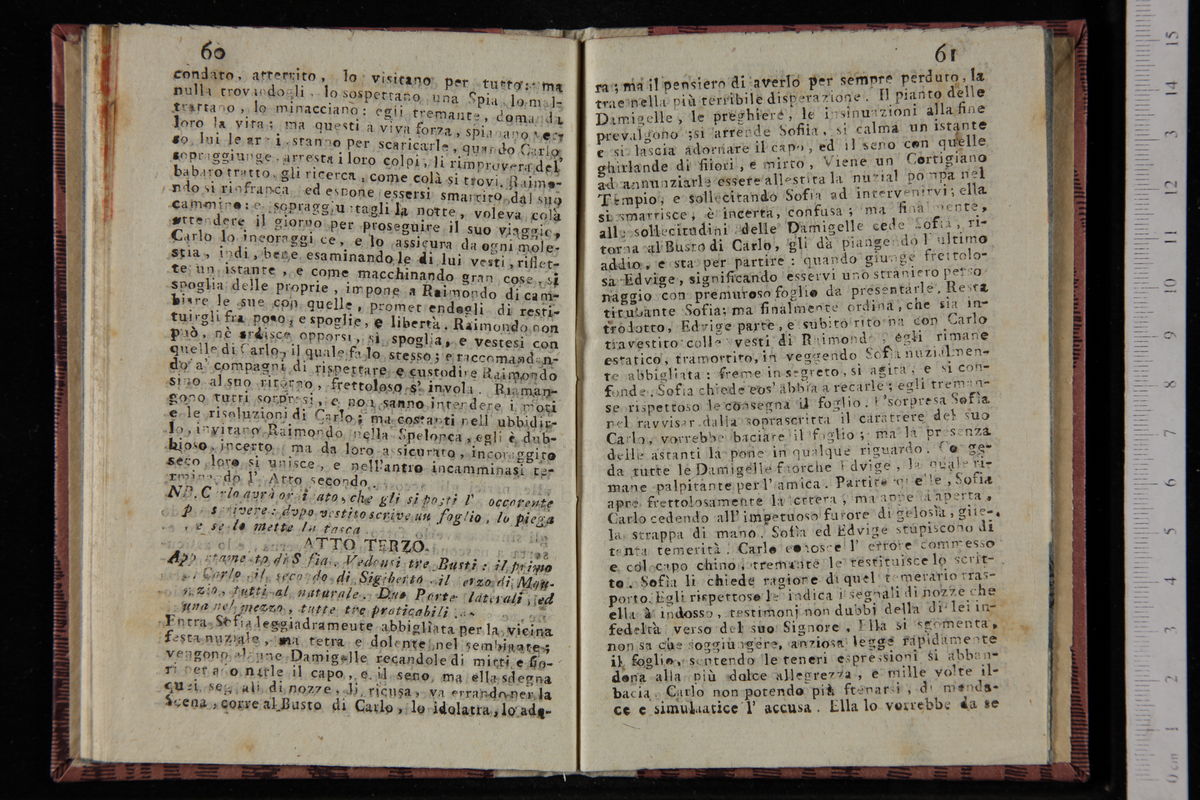 60
condato, atterrito, lo visitano per tutto: ma
nulla trovandogli, lo sospettano una Spia, lo mal-
trattano, lo minacciano: egli tremante, domanda
loro la vita; ma questi a viva forza, spianano ver-
so lui le ar i stanno per scaricarle, quando Carlo
sopraggiunge, arresta i loro colpi, li rimprovera del'
babaro tratto, gli ricerca, come colà si trovi. Raimo-
ndo si rinfranca, ed espone essersi smarrito dal suo
cammino: e sopraggiu tagli la notte, voleva colà
attendere il giorno per proseguire il suo viaggio,
Carlo lo incoraggi ce, e lo assicura da ogni mole-
stia, indi, bene esaminandole di lui vesti, riflet-
te un istante, e come macchinando gran cose, si
spoglia delle proprie, impone a Raimondo di cam-
biare le sue con quelle, promettendogli di resti-
tuirgli fra poco, e spoglie, e libertà. Raimondo non
può, nè ardisce opporsi, si spoglia, e vestesi con
quelle di Carlo, il quale fa lo stesso; e raccomandan-
do a' compagni di rispettare e custodire Raimondo
sino al suo ritorno, frettoloso s' invola. Riman-
gono tutti sorpresi, e non sanno intendere i moti
e le risoluzioni di Carlo; ma costanti nell ubbidir-
lo, invitano Raimondo nella Spelonca, egli è dub-
bioso, incerto, ma da loro assicurato, incoraggito
seco loro si unisce, e nell'antro incamminasi te-
rminando l' Atto secondo.
NB. C rlo avrà or i ato, che gli si porti l' occorente
p s rivere: dopo vestito scrive un foglio, lo piega
, e se lo mette in tasca
ATTO TERZO.
App tame to di S fia. Vedonsi tre Busti: il primo
Carlo il seco do di Sigeberto, il erzo di Mau-
rizio, tutti al naturale. Due Porte laterali, ed
una nel mezzo, tutte tre praticabili.
Entra Sofia leggiadramente abbigliata per la vicina
festa nuziale, ma tetra e dolente nel sembiante;
vengono alcune Damigelle recandole di mirti e fio-
ri per a o narle il capo, e il seno, ma ella sdegna
quei seg ali di nozze, li ricusa, va errando per la
Scena, corre al Busto di Carlo, lo idolatra, lo ado-
61
ra; ma il pensiero di averlo per sempre perduto, la
trae nella più terribile disperazione. Il pianto delle
Damigelle, le preghiere, le insinuazioni alla fine
prevalgono; si arrende Sofiia, si calma un istante
e si lascia adornare il capo, ed il seno con quelle
ghirlande di fiiori, e mirto, Viene un Cortigiano
ad annunziarle essere allestita la nuzial pompa nel
Tempio, e sollecitando Sofia ad intervenirvi; ella
si smarrisce, è incerta, confusa; ma fina mente,
alle sollecitudini delle Damigelle cede Sofia, ri-
torna al Busto di Carlo, gli dà piangendo l'ultimo
addio, e sta per partire: quando giunge frettolo-
sa Edvige, significando esservi uno straniero perso
naggio con premuroso foglio da presentarle, Resta
titubante Sofia; ma finalmente ordina, che sia in-
trodotto, Edvige parte, e subito rito na con Carlo
travestito colle vesti di Raimond ; egli rimane
estatico, tramortito, in veggendo Sofia nuzialmen-
te abbigliata: freme in segreto, si agita, e si con-
fonde. Sofia chiede cos' abbia a recarle; egli treman-
se rispettoso le consegna il foglio. L'sorpresa Sofia
nel ravvisar dalla soprascritta il carattere del suo
Carlo, vorrebbe baciare il foglio; ma la presenza
delle astanti la pone in qualque riguardo. Co ge-
da tutte le Damigelle fuorche Edvige, la quale ri-
mane palpitante per l' amica. Partite quelle, Sofia
apre frettolosamente la lettera, ma appe a aperta,
Carlo cedendo all' impetuoso furore di gelosia, glie-
la strappa di mano. Sofia ed Edvige stupiscono di
tanta temerità. Carlo conosce l' errore commesso
e col capo chino, tremante le restituisce lo scrit-
to. Sofia li chiede ragione di quel temerario tras-
porto. Egli rispettoso le indica i segnali di nozze che
ella à indosso, testimoni non dubbi della di lei in-
fedeltà verso del suo Signore. Ella si sgomenta,
non sa che soggiungere, anziosa legge rapidamente
il foglio, sentendo le teneri espressioni si abban-
dona alla più dolce allegrezza, e mille volte il-
bacia. Carlo non potendo più frenarsi, di menda-
ce e simulatice l' accusa. Ella lo vorrebbe da se